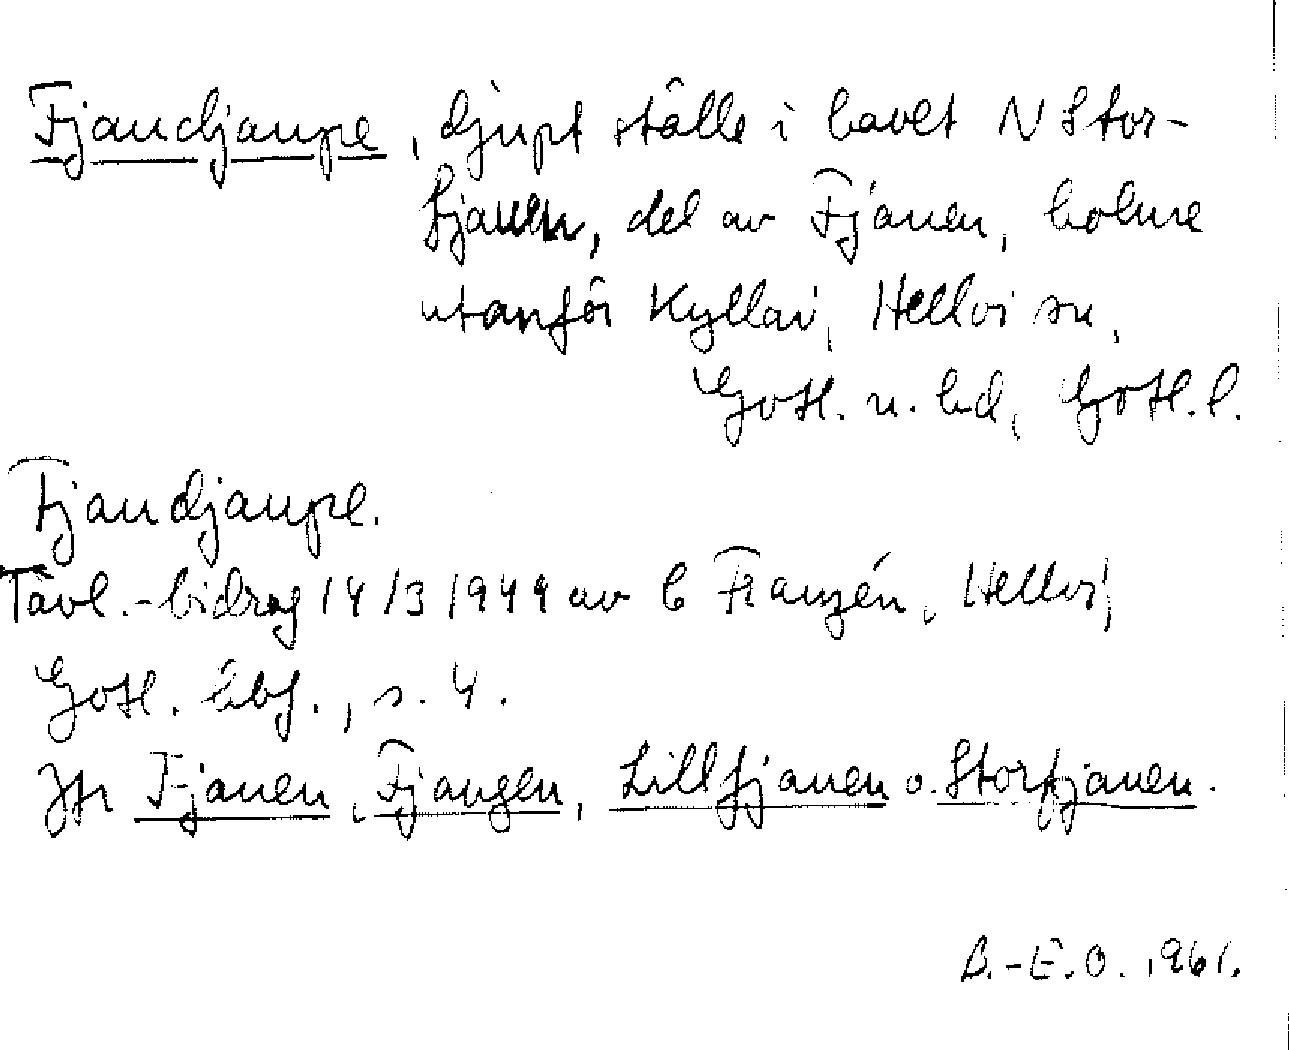 Fjaudjaupe, djupt ställe i havet N Stor-
fjauen, del av Fjauen, holme
utanför Kyllaj, Hellvi sn,
Gotl. n. hd, Gotl. l.
Fjaudjaupe.
Tävl.-bidrag 14/3 1949 av C Franzén, Hellvi,
Gotl. hbf., s. 4.
Jfr Fjauen, Fjaugen, Lillfjauen o. Storfjauen.
B.-E.O. 1961.